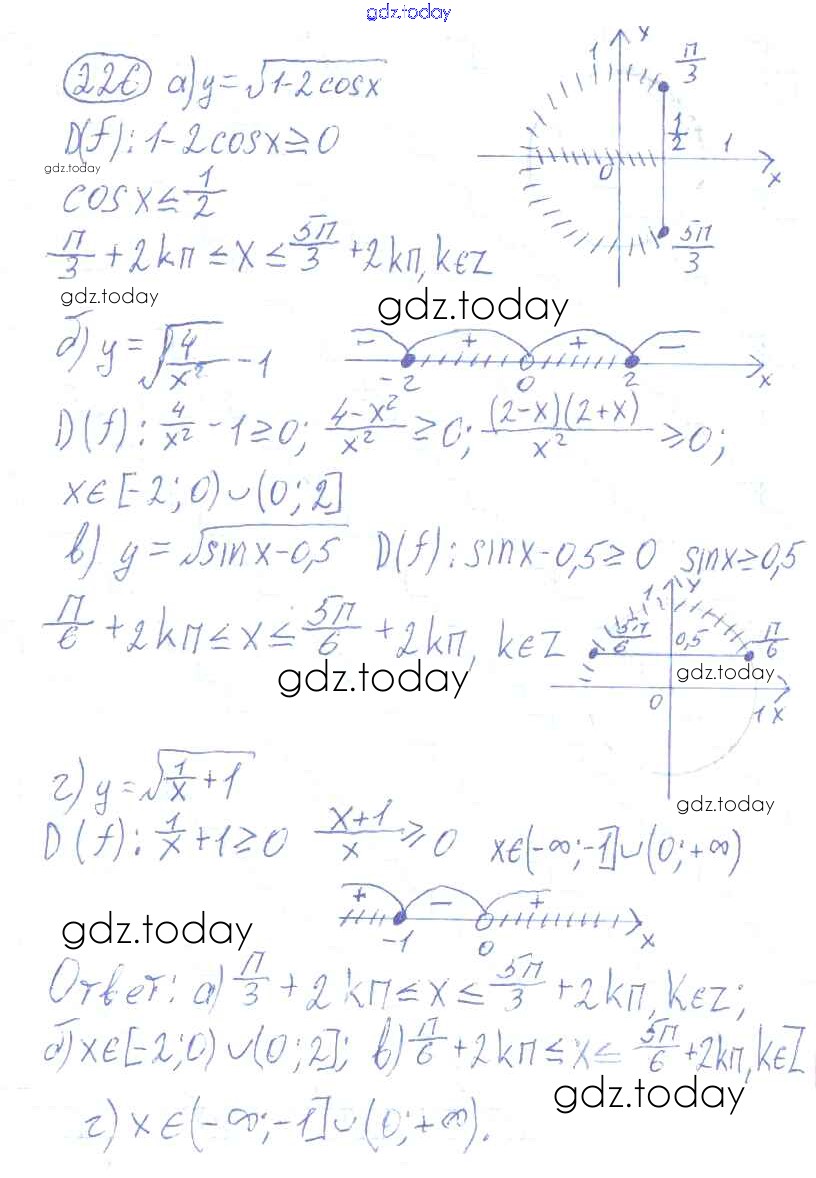 gdz.today
226 а) y = √(1-2cosx)
D(f): 1-2cosx ≥ 0
gdz.today
cosx ≤ 1/2
π/3 + 2kπ ≤ x ≤ 5π/3 + 2kπ, k∈Z
1 y π/3
1/2 1
0 x
5π/3
gdz.today
gdz.today
б) y = √(4/x²) - 1
- + + -
-2 0 2 x
D(f): 4/x² - 1 ≥ 0; (4-x²)/x² ≥ 0; (2-x)(2+x)/x² ≥ 0;
x∈[-2;0)∪(0;2]
в) y = √(sinx-0,5) D(f): sinx-0,5 ≥ 0 sinx ≥ 0,5
π/6 + 2kπ ≤ x ≤ 5π/6 + 2kπ, k∈Z
1 y
5π/6 0,5 π/6
gdz.today
gdz.today
0 1 x
г) y = √(1/x + 1)
gdz.today
D(f): 1/x + 1 ≥ 0 (x+1)/x ≥ 0 x∈(-∞;-1]∪(0;+∞)
+ - +
-1 0 x
gdz.today
Ответ: а) π/3 + 2kπ ≤ x ≤ 5π/3 + 2kπ, k∈Z;
б) x∈[-2;0)∪(0;2]; в) π/6 + 2kπ ≤ x ≤ 5π/6 + 2kπ, k∈Z
gdz.today
г) x∈(-∞;-1]∪(0;+∞).